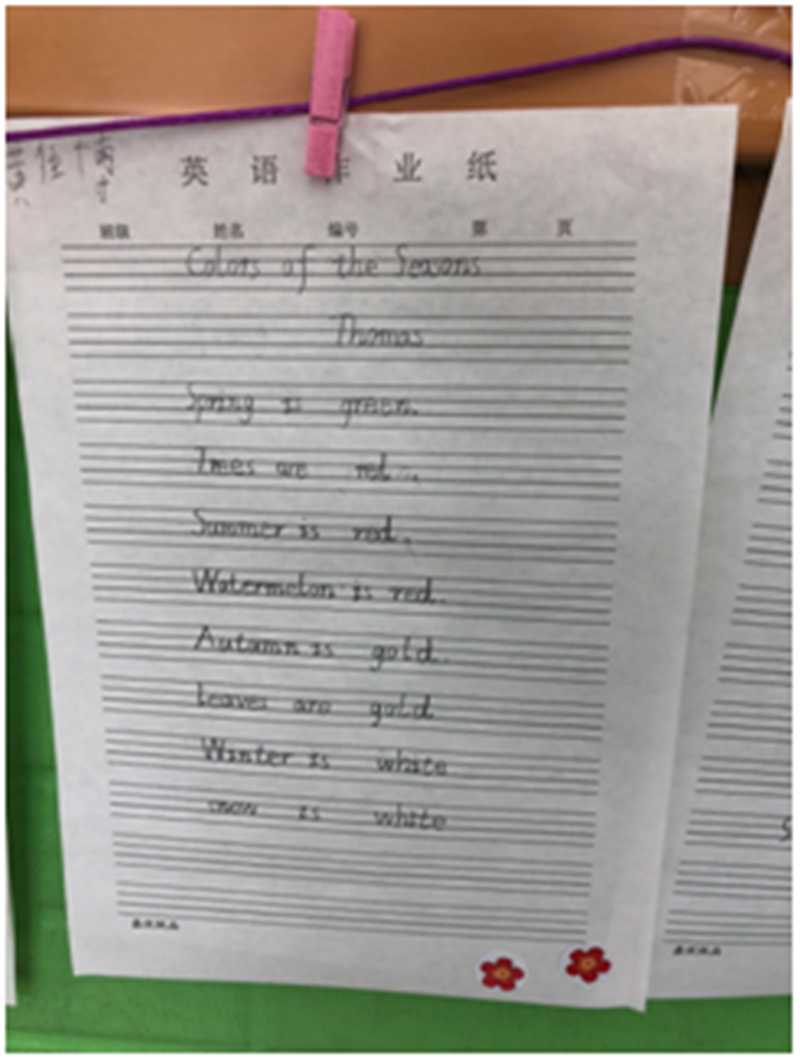 英语作业纸
班级 姓名 编号 第 页
Colors of the Seasons
Thomas
Spring is green.
Trees are red
Summer is red.
Watermelon is red.
Autamn is gold.
leaves are gold
Winter is white
snow is white